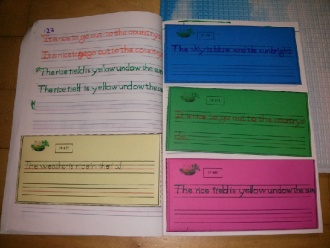 123
It is nice to go out to the country
It is nice to go out to the country
The rice field is yellow undow the sun
The rice field is yellow undow the sun
The weather is nice in the fall
The sky is blue and the sun bright
It is nice to go out to the country
The rice field is yellow undow the sun